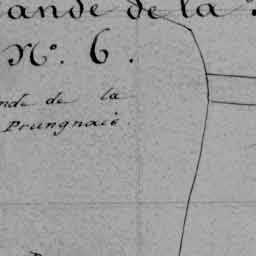 ande de la
N.º 6.
nde de la
Prungnais.